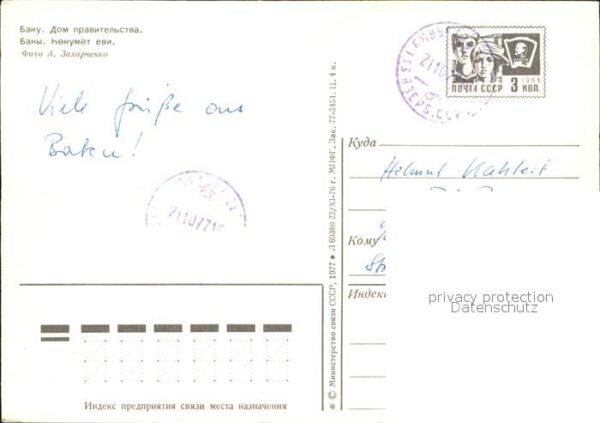 Баку. Дом правительства.
Бакы. Һөкумәт еви.
Фото А. Захарченко
Viele Grüße aus
Baku!
ПОЧТА СССР 3 КОП.
1966
211077
Куда
Helmut
Кому
Индекс
privacy protection
Datenschutz
* © Министерство связи СССР, 1977 • Л 60380 22/XI-76 г. МПФГ. Зак. 77-5454. Ц. 4 к.
Индекс предприятия связи места назначения